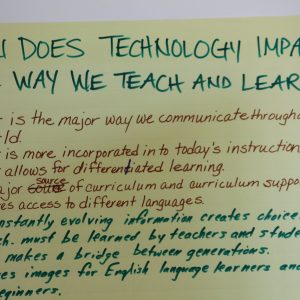 DOES TECHNOLOGY IMPA
WAY WE TEACH AND LEAR
is the major way we communicate througho
ld.
is more incorporated in to today's instruction
allows for differentiated learning.
source
ajor of curriculum and curriculum suppo
es access to different languages.
nstantly evolving information creates choice
ch. must be learned by teachers and stude
makes a bridge between generations.
es images for English language learners and
eginners.